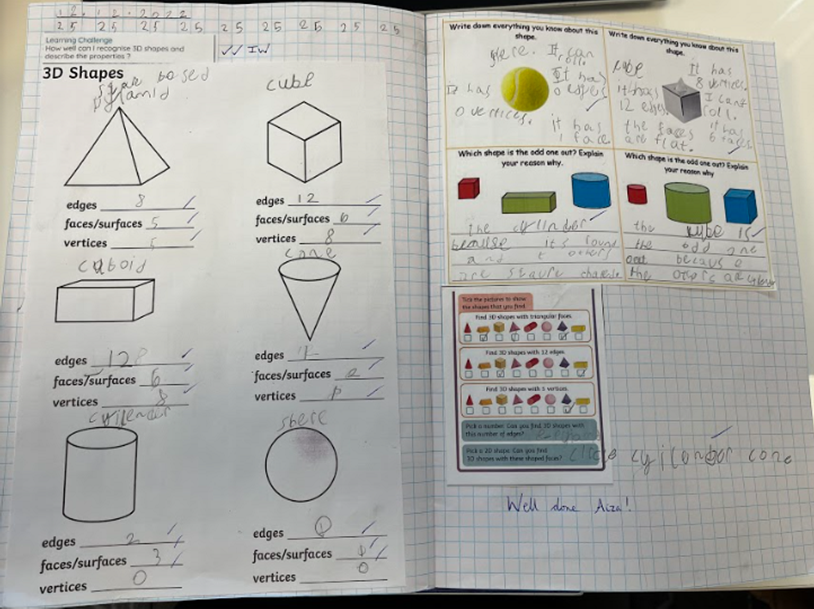 12.12.2022
25 25 25 25 25 25 25 25 25 25
Learning Challenge
How well can I recognise 3D shapes and
describe the properties ?
IW
3D Shapes
cube
edges 8
faces/surfaces 5
vertices 5
edges 12
faces/surfaces 6
vertices 8
cuboid
cone
edges 12
faces/surfaces 6
vertices 8
edges
faces/surfaces
vertices
cyilender
shere
edges 2
faces/surfaces 3
vertices 0
edges 0
faces/surfaces
vertices 0
Write down everything you know about this
shape.
It can
roll.
It has
0 edges
It has
0 vertices.
it has
1 face
Write down everything you know about this
shape.
It has
8 vertices.
it has
12 edges.
I cant
roll.
the faces
are flat.
it has
6 faces
Which shape is the odd one out? Explain
your reason why.
the cylinder
because its round
and
are
Which shape is the odd one out? Explain
your reason why
the is
the odd one
out
the
Tick the pictures to show
the shapes that you find.
Find 3D shapes with triangular faces.
Find 3D shapes with 12 edges
Find 3D shapes with 5 vertices.
Pick a number. Can you find 3D shapes with
this number of edges?
Pick a 2D shape. Can you find
3D shapes with these shaped faces?
cone
Well done Aiza!